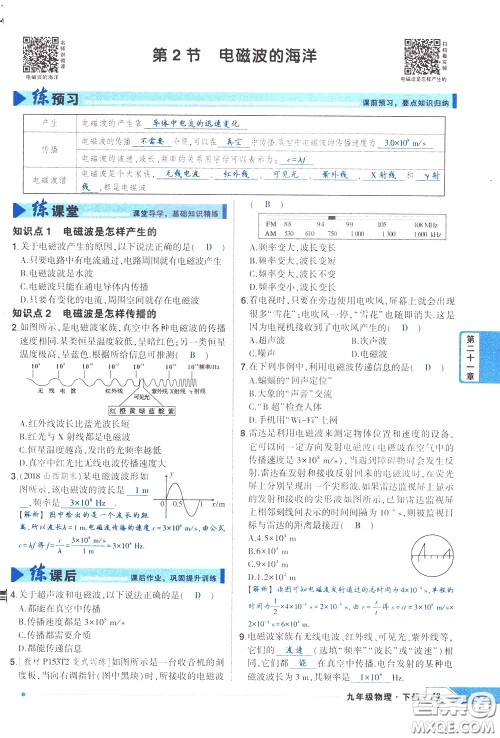 名师讲课堂
电磁波的海洋
第2节 电磁波的海洋
扫码看视频
电磁波是怎样产生的
练预习 课前预习，要点知识归纳
产生 电磁波的产生靠 导体中电流的迅速变化
传播 电磁波的传播 不需要 介质,可以在 真空 中传播.真空中电磁波的传播速度为 3.0×10⁸ m/s
电磁波的波速、波长、频率的关系用字母可以表示为: c=λf
电磁波谱 电磁波是个大家族, 无线电波 、 红外线 、 可见光 、 紫外线 、 X 射线 和 γ射线 等,都是电磁波
练课堂 课堂导学，基础知识精练
知识点1 电磁波是怎样产生的
1.关于电磁波产生的原因,以下说法正确的是( D )
A.只要电路中有电流通过,电路周围就有电磁波产生
B.电磁波就是水波
C.电磁波只能在通电导体内传播
D.只要有变化的电流,周围就有电磁波产生
知识点2 电磁波是怎样传播的
2.如图所示,是电磁波家族,真空中各种电磁波的传播速度相同.某类恒星温度较低,呈暗红色;另一类恒星温度极高,呈蓝色.根据所给信息判断( C )
无线电波 微波 红外线 紫外线 X射线 γ射线
可见光
红橙黄绿蓝靛紫
A.红光波长比蓝光波长短
B.X 射线都不是电磁波
C.恒星温度越高,发出光频率越高
D.真空中红光比无线电波传播速度大
3.(2018 山西期末)某电磁波波形如图所示,该电磁波的波长是 1 m ,频率是 3×10⁸ Hz .
[解析] 图中所给出的是一个波长的距离,所以波长λ=1m.电磁波传播的速度c=3×10⁸m/s,由公式c=λf得f=c/λ=3×10⁸m/s/1m=3×10⁸Hz.
练课后 课后作业，巩固提升训练
4.关于超声波和电磁波,以下说法正确的是( D )
A.都能在真空中传播
B.传播速度相同
C.都不能在真空中传播
D.都能在空气中传播
5.[教材 P153T2 变式训练]如图所示是一台收音机的刻度盘,当向右调指针(图中黑块)时,所接收电磁波的( B )
FM 88 94 99 105 108 MHz
AM 530 630 800 900 1200 1600 kHz
A.频率变大,波长变长
B.频率变大,波长变短
C.频率变小,波长变长
D.频率变小,波长变短
6.看电视时,如果同时使用电吹风,电视屏幕上会出现很多“雪花”,这些“雪花”主要是因为电视机接收到了电吹风产生的( B )
A.超声波 B.电磁波
C.噪声 D.次声波
7.在下列事例中,利用电磁波传递信息的是( D )
A.蝙蝠的“回声定位”
B.大象的“声音”交流
C.声呐探测鱼群
D.手机用“Wi-Fi”上网
8.雷达是利用电磁波来测定物体位置和速度的设备,它可以向一定方向发射电磁波(电磁波在空气中的传播速度是 3×10⁸ m/s),当遇到障碍物时会发生反射.雷达在发射和接收反射回来的电磁波时,在荧光屏上分别呈现出一个尖形波.如图是某雷达监视屏上的发射和接收的尖形波.已知图中雷达监视屏上相邻刻线表示的时间间隔为 10⁻⁴ s,则被监视目标与雷达的距离最接近( D )
A.4.5×10⁴ m
B.9×10⁴ m
C.3×10⁴ m
D.6×10⁴ m
9.电磁波家族有无线电波、红外线、可见光、紫外线等,它们的 波速 (波速/频率/波长)都相同.
九年级物理·下册
第二十一章